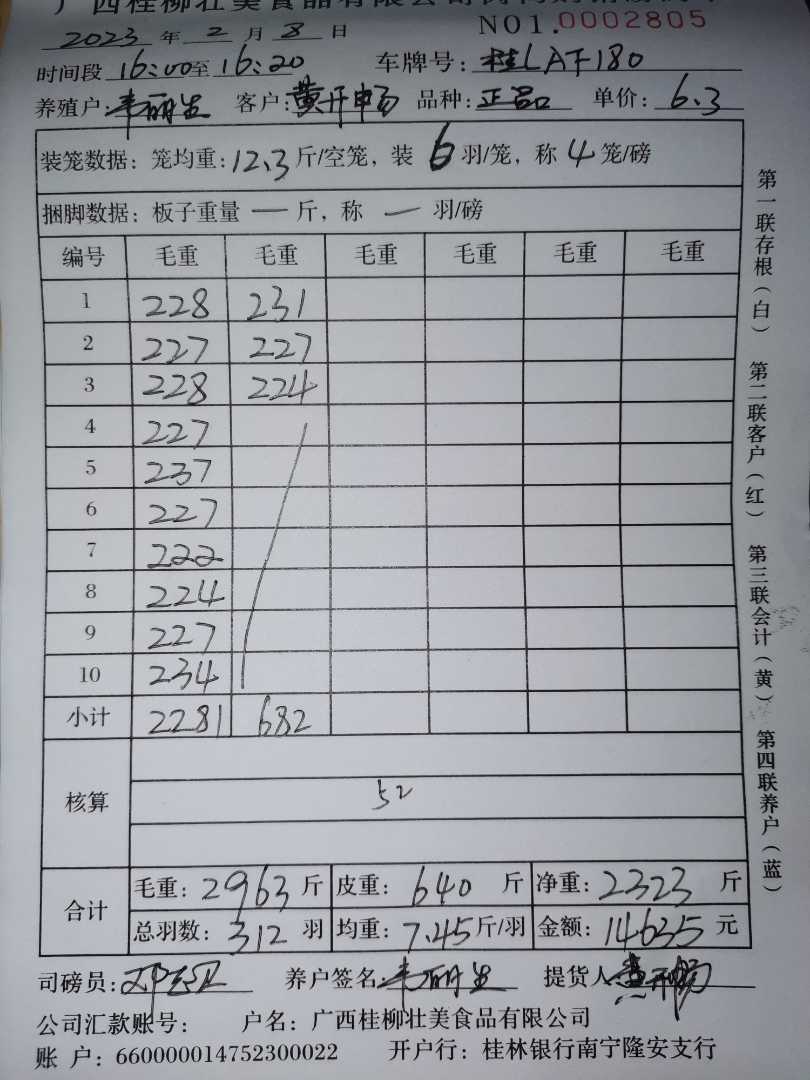 广西桂柳壮美食品有限公司
2023 年 2 月 8 日 NO1.0002805
时间段 16:00至16:20 车牌号: 桂LAF180
养殖户: 韦丽生 客户: 黄开畅 品种: 正品 单价: 6.3
装笼数据: 笼均重: 12.3 斤/空笼, 装 6 羽/笼, 称 4 笼/磅
捆脚数据: 板子重量 — 斤, 称 — 羽/磅
编号 毛重 毛重 毛重 毛重 毛重 毛重
1 228 231
2 227 227
3 228 224
4 227
5 237
6 227
7 222
8 224
9 227
10 234
小计 2281 682
核算 52
合计 毛重: 2963 斤 皮重: 640 斤 净重: 2323 斤
总羽数: 312 羽 均重: 7.45斤/羽 金额: 14635 元
司磅员: 养户签名 韦丽生 提货人 黄开畅
公司汇款账号: 户名: 广西桂柳壮美食品有限公司
账 户: 660000014752300022 开户行: 桂林银行南宁隆安支行
第一联存根(白) 第二联客户(红) 第三联会计(黄) 第四联养户(蓝)